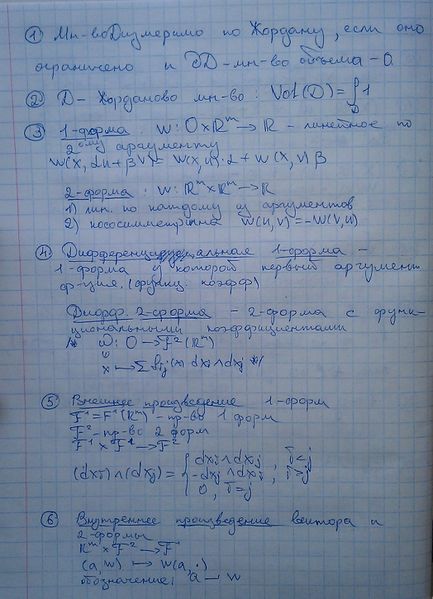 ① Мн-во D измеримо по Жордану, если оно
ограничено и ∂D - мн-во объема - 0.
② D - Жорданово мн-во : Vol(D) = ∫_D 1
③ 1-форма : w: O×ℝᵐ → ℝ - линейное по
2ому аргументу
w(x, αu + βv) = w(x, u)·α + w(x, v)β
2-форма : w: ℝᵐ×ℝᵐ → ℝ
1) лин. по каждому из аргументов
2) кососимметрична w(u,v) = -w(v,u)
④ Дифференциальная 1-форма -
1-форма у которой первый аргумент
ф-ция. (функц. коэфф)
Дифф. 2-форма - 2-форма с функ-
циональными коэффициентами
w: O → F²(ℝᵐ)
x ↦ Σ f_ij (x) dx_i ∧ dx_j
⑤ Внешнее произведение 1-форм
F¹ = F¹(ℝᵐ) - пр-во 1 форм
F² - пр-во 2 форм
F¹ × F¹ → F²
(dx_i) ∧ (dx_j) = { dx_i ∧ dx_j , i < j
-dx_j ∧ dx_i , i > j
0 , i = j
⑥ Внутреннее произведение вектора и
2-формы
ℝᵐ × F² → F¹
(a, w) ↦ w(a, ·)
обозначение: a ⨼ w